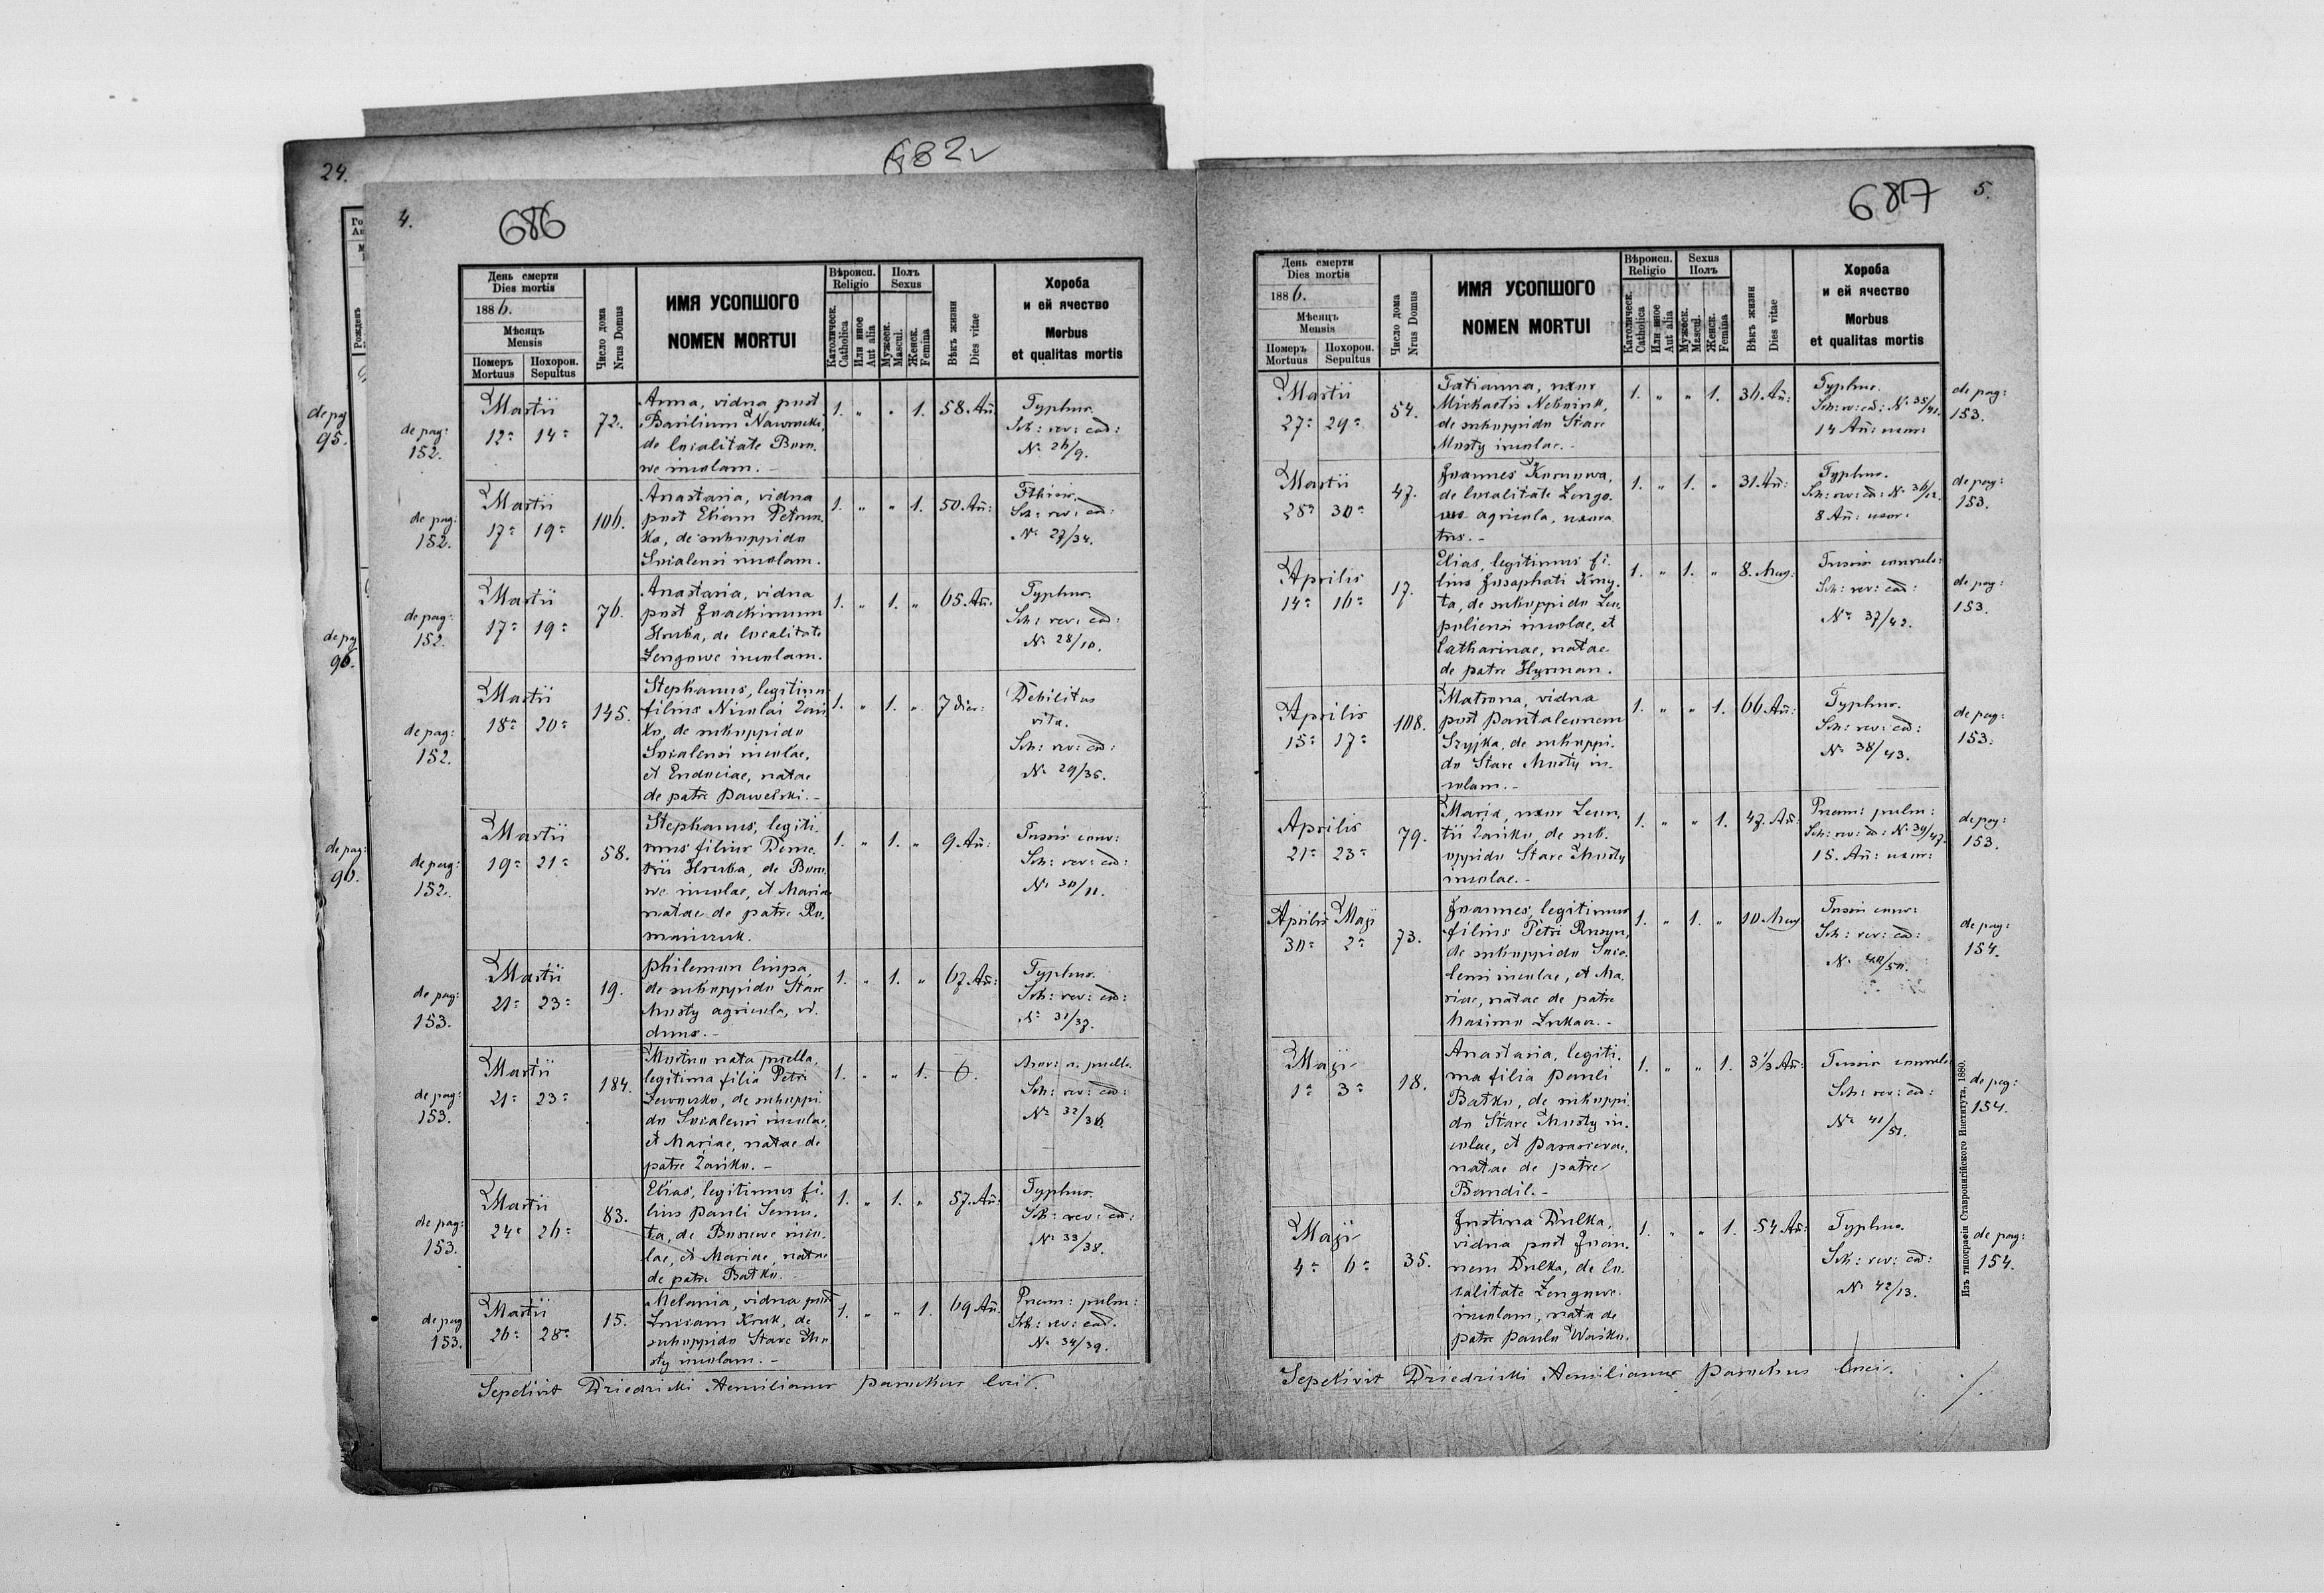 24.
682
de pag
95.
de pag
96.
de pag:
96.
4.
686
День смерти
Dies mortis
1886.
Мѣсяцъ
Mensis
Померъ
Mortuus
Похорон.
Sepultus
Число дома
Nrus Domus
ИМЯ УСОПШОГО
NOMEN MORTUI
Вѣроисп.
Religio
Католическ.
Catholica
Или иное
Aut alia
Полъ
Sexus
Мужеск.
Mascul.
Женск.
Femina
Вѣкъ жизни
Dies vitae
Хороба
и ей ячество
Morbus
et qualitas mortis
de pag:
152.
Martii
12 14
72.
Anna, vidua post
Basilium Nawrocki,
de localitate Boro.
we incolam.
1. " " 1. 58. Añ.
Typhus.
Sch: rev: cad:
N. 26/9.
de pag:
152.
Martii
17 19
106.
Anastasia, vidua
post Eliam Petrun.
ko, de suboppido
Socalensi incolam.
1. " " 1. 50. Añ:
Pthisis.
Sch: rev: cad:
N. 27/34.
de pag:
152.
Martii
17 19
76.
Anastasia, vidua
post Joachimum
Hruba, de localitate
Zengowe incolam.
1. " 1. " 65. Añ.
Typhus.
Sch: rev: cad:
N. 28/10.
de pag:
152.
Martii
18 20
145.
Stephanus, legitimus
filius Nicolai Zai
ko, de suboppido
Socalensi incolae,
et Eudociae, natae
de patre Pawelski.
1. " 1. " 7 dies:
Debilitas
vita.
Sch: rev: cad:
N. 29/35.
de pag:
152.
Martii
19 21
58.
Stephanus, legiti.
mus filius Deme.
trii Hruba, de Boro
we incolae, et Mariae
natae de patre Ro.
maniuk.
1. " 1. " 9. Añ:
Tussis conv:
Sch: rev: cad:
N. 30/11.
de pag:
153.
Martii
21 23
19.
Philemon Ciupa,
de suboppido Stare
Mosty agricola, vi.
duus.
1. " 1. " 67. Añ:
Typhus.
Sch: rev: cad:
N. 31/37.
de pag:
153.
Martii
21 23
184.
Mortuo nata puella,
legitima filia Petri
Lewousko, de suboppi
do Socalensi incolae,
et Mariae, natae de
patre Zaiko.
1. " " 1. 0.
Mor: n. puella
Sch: rev: cad:
N. 32/36.
de pag:
153.
Martii
24 26
83.
Elias, legitimus fi.
lius Pauli Seniu.
ta, de Borowe inco.
lae, et Mariae, natae
de patre Batko.
1. " 1. " 57. Añ:
Typhus.
Sch: rev: cad:
N. 33/38.
de pag
153.
Martii
26 28
15.
Melania, vidua post
Lucam Kruk, de
suboppido Stare Mo
sty incolam.
1. " " 1. 69 Añ.
Pneum: pulm:
Sch: rev: cad.
N. 34/39.
Sepelivit Dziedzicki Aemilianus parochus loci.
687
5.
День смерти
Dies mortis
1886.
Мѣсяцъ
Mensis
Померъ
Mortuus
Похорон.
Sepultus
Число дома
Nrus Domus
ИМЯ УСОПШОГО
NOMEN MORTUI
Вѣроисп.
Religio
Католическ.
Catholica
Или иное
Aut alia
Sexus
Полъ
Мужеск.
Mascul.
Женск.
Femina
Вѣкъ жизни
Dies vitae
Хороба
и ей ячество
Morbus
et qualitas mortis
Martii
27 29
54.
Tatianna, uxor
Michaelis
de suboppido Stare
Mosty incolae.
1. " " 1. 36. Añ:
Typhus.
Sch: rev: cad: N. 35/41.
14 Añ: uxor:
de pag:
153.
Martii
28 30
47.
Joannes Kornowa,
de localitate Zengo.
we agricola, uxora
tus.
1. " 1. " 31. Añ:
Typhus.
Sch: rev: cad: N. 36/12.
8 Añ: uxor:
de pag:
153.
Aprilis
14 16
17.
Elias, legitimus fi.
lius Josaphati
ta, de suboppido Leo.
poliensi incolae, et
Catharinae, natae
de patre Hyrman.
1. " 1. " 8. Meng:
Tussis convuls:
Sch: rev: cad:
N. 37/42.
de pag:
153.
Aprilis
15 17
108.
Matrona, vidua
post Pantaleonem
Szyjka, de suboppi.
do Stare Mosty in.
colam.
1. " " 1. 66 Añ:
Typhus.
Sch: rev: cad:
N. 38/43.
de pag:
153.
Aprilis
21 23
79.
Maria, uxor Leon.
tii Zaiko, de sub.
oppido Stare Mosty
incolae.
1. " " 1. 47. Añ:
Pneum: pulm:
Sch: rev: cad: N. 39/47.
15. Añ: uxor:
de pag:
153.
Aprilis Maji
30 2
73.
Joannes, legitimus
filius Petri Rusyn,
de suboppido Soca.
lensi incolae, et Ma.
riae, natae de patre
Maximo Lukacz.
1. " 1. " 10. Meng
Tussis conv:
Sch: rev: cad:
N. 40/50.
de pag:
154.
Maji
1 3
18.
Anastasia, legiti.
ma filia Pauli
Batko, de suboppi.
do Stare Mosty in.
colae, et Parascevae,
natae de patre
Bandil.
1. " " 1. 3 1/3 Añ:
Tussis convuls:
Sch: rev: cad:
N. 41/51.
de pag:
154.
Maji
4 6
35.
Justina Dulka,
vidua post Joan.
nem Dulka, de lo.
calitate Zengowe
incolam, nata de
patre Paulo Wasko.
1. " " 1. 54 Añ:
Typhus.
Sch: rev: cad:
N. 42/13.
de pag:
154.
Sepelivit Dziedzicki Aemilianus parochus loci.
Изъ типографіи Ставропигійского Института, 1880.